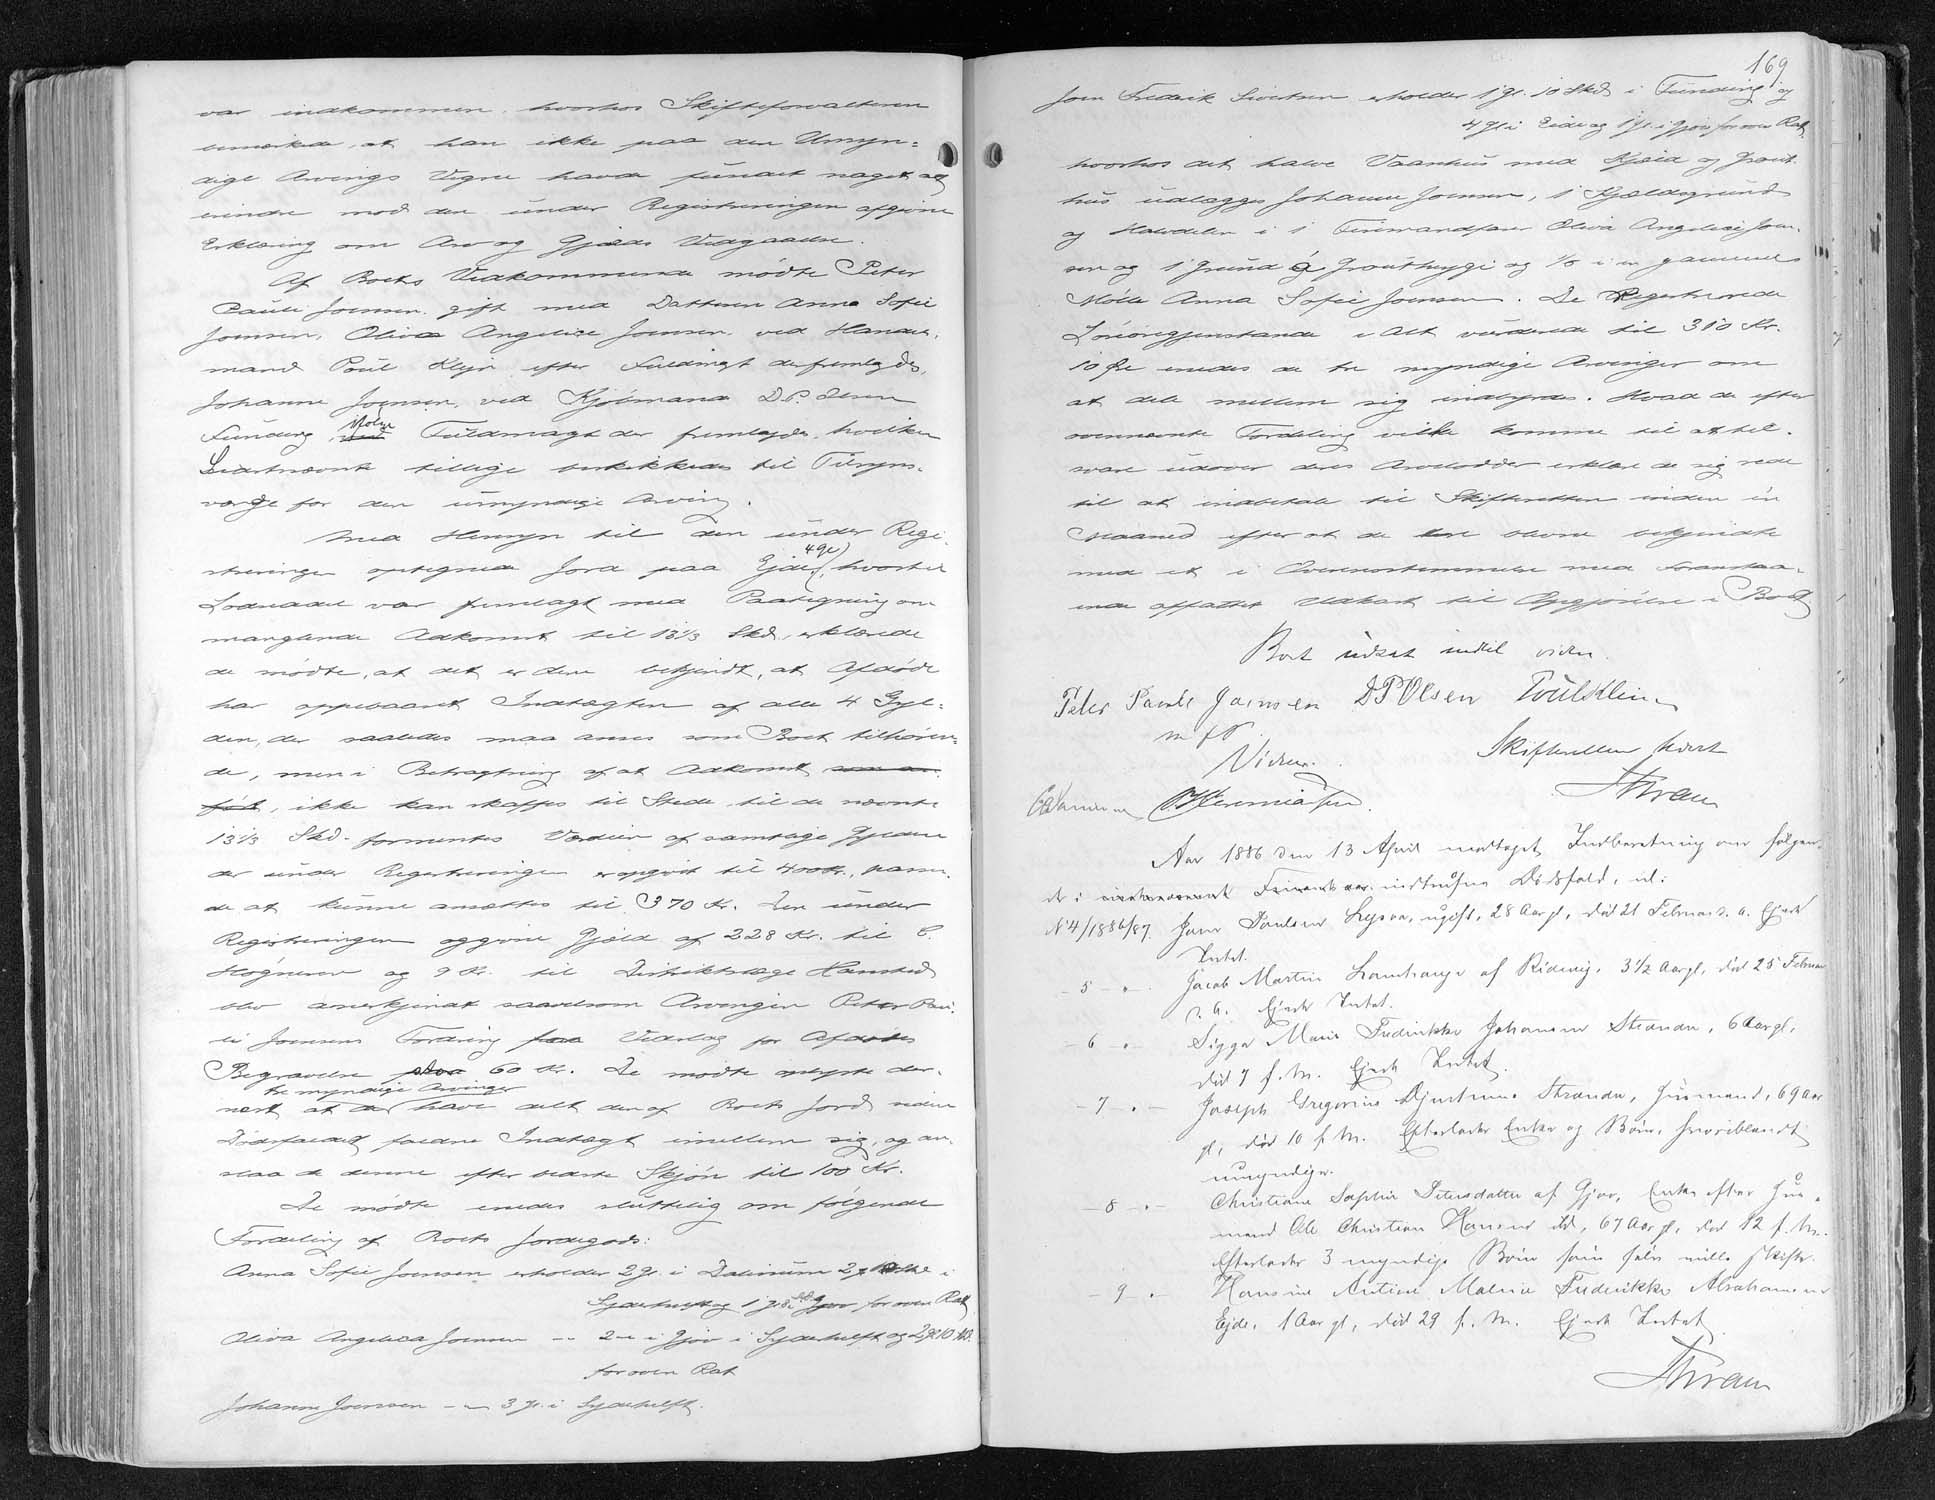 var indkommen. hvorhos Skifteforvalteren
bemærkede, at han ikke paa den Umyn=
dige Arvings Vegne havde fundet noget at
erindre mod den under Registreringen afgivne
Erklæring om Arv og Gjælds Vedgaaelse.
Af Boets Vedkommende mødte Peter
Pauli Joensen gift med Datteren Anna Sofie
Joensen, Oliva Angelica Joensen ved Handels-
mand Poul Klein efter Fuldmagt der fremlagdes,
Johanne Joensen, ved Kjøbmand D.P. Olsen
Funding ifølge Fuldmagt der fremlagdes, hvilken
Sidstnævnte tillige beskikkedes til Tilsyns-
værge for den umyndige Arving.
Med Hensyn til den under Regi-
streringen optegnede Jord paa Ejde (4 gl), hvortil
Lodseddel var fremlagt med Paategning om
manglende Adkomst til 13 1/3 Skd, erklærede
de mødte, at det er dem bekjendt, at Afdøde
har oppebaaret Indtægten af alle 4 Gyl=
den, der saaledes maa anses som Boet tilhøren=
de, men i Betragtning af at Adkomst
, ikke kan skaffes til Stede til de nævnte
13 1/3 Skd. formentes Værdien af samtlige Gylden
der under Registreringen er opgivet til 400 Kr., passen-
de at kunne ansættes til 370 Kr. Den under
Registreringen opgivne Gjæld af 228 Kr. til C.
og 9 Kr. til Distriktslæge Hansted
blev anerkjendt saavelsom Arvingen Peter Pau-
li Joensens Fordring Vederlag for Afdødes
Begravelse 60 Kr. De mødte oplyste der-
næst at de tre myndige Arvinger have delt den af Boets Jord siden
Dødsfaldet faldne Indtægt imellem sig, og an-
slaa de denne efter bedste Skjøn til 100 Kr.
De mødte enedes sluttelig om følgende
Fordeling af Boets Jordegods:
Anna Sofie Joensen erholder 2 gl. i 2 gl i
Sydehelft og 1 gl. i Gjov for oven Ræt
Oliva Angelica Joensen — 2 — i Gjov i Sydehelft og 2 gl 10
for oven Ræt
Johanne Joensen — 3 gl. i Sydehelft.
169
Joen Fredrik Sivertsen erholder 1 gl. 10 Skd i Funding og
4 gl i Eide og 1 gl. i Gjov for oven Ræt,
hvorhos det halve Vaanhus med Kjæld og
hus udlægges Johanne Joensen, 1 Kjældegrund
og Halvdelen i 1 Firemandsfar Oliva Angelica Joen-
sen og 1 Grund og 1/8 i en gammel
Mølle Anna Sofie Joensen. De Registrerede
Løsøregjenstande i Alt vurderede til 310 Kr.
10 Øre enedes de tre myndige Arvinger om
at dele mellem sig indbyrdes. Hvad de efter
ovennævnte Fordeling ville komme til at til-
svare udover deres Arvelodder erklære de sig rede
til at indbetale til Skifteretten inden en
Maaned efter at de ere blevne bekjendte
med et i Overensstemmelse med Foranstaa-
ende affattet Udkast til Opgjørelse i Boet
Boet udsat indtil videre.
Peter Pauli Joensen D P Olsen Poul Klein
m f P
Vidner: Skifteretten hævet
Aar 1886 den 13 April modtaget Indberetning om følgen-
de i indtrufne Dødsfald, nl:
N 4/1886/87. Joen Poulsen ugift, 28 Aar gl, død 21 Februar d. A. Ejede
Intet.
— 5 — " Jacob Martin af 3 1/2 Aar gl, død 25 Februar
d. A. Ejede Intet.
— 6 — " Sigga Marie Fredrikke Johansen Strænde, 6 Aar gl,
død 7 f. M. Ejede Intet.
— 7 — " Joseph Gregorius Strænde, Husmand, 69 Aar
gl, død 10 f. M. Efterlader Enke og Børn, hvoriblandt
umyndige.
— 8 — " Christiane Sophie Petersdatter af Gjov, Enke efter Hus-
mand Ole Christian Hansen ibd, 67 Aar gl, død 12 f. M.
Efterlader 3 myndige Børn som selv ville skifte.
— 9 — " Hansine Malvie Fredrikke Abrahamsen
Ejde, 1 Aar gl, død 29 f. M. Ejede Intet